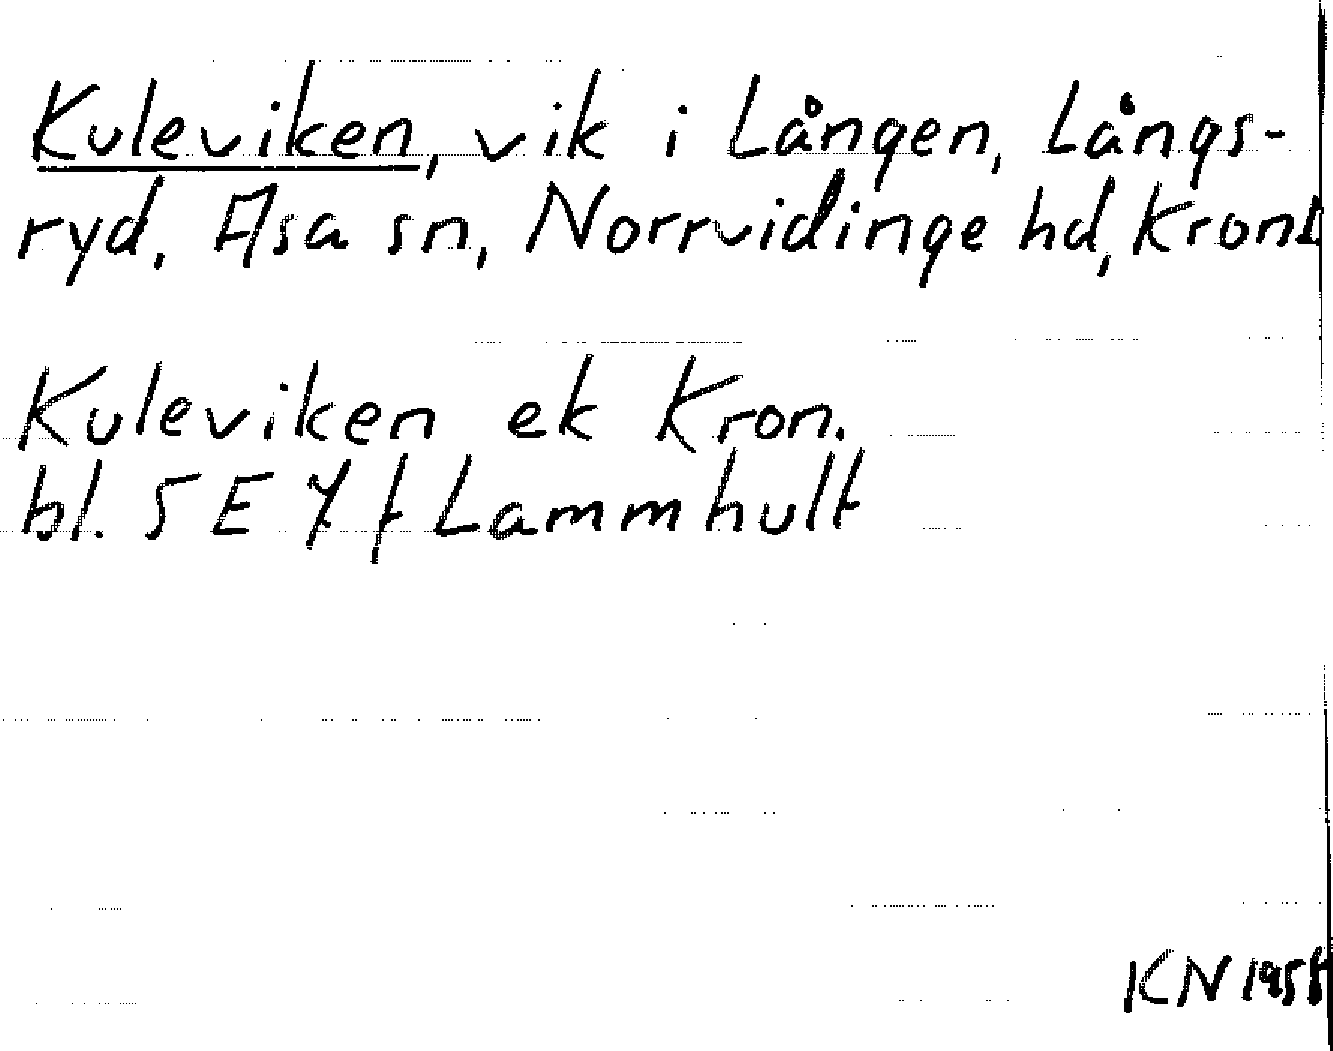 Kuleviken, vik i Lången, Långs-
ryd, Asa sn, Norrvidinge hd, Kronb
Kuleviken ek Kron.
bl. 5 E 7 f Lammhult
KN